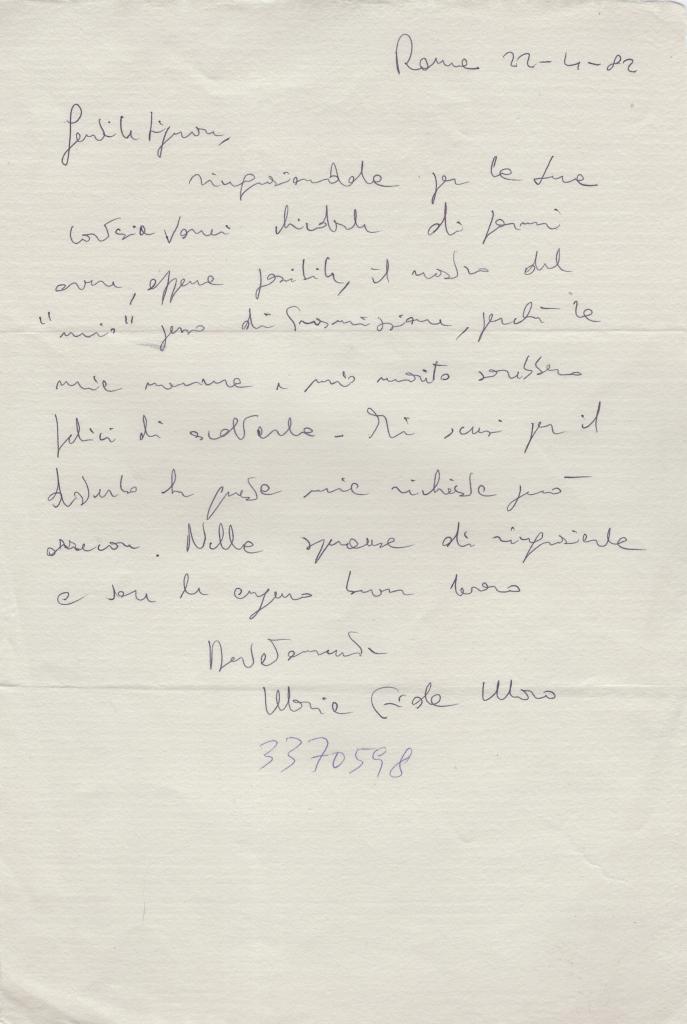 Roma 22-4-82
Gentile Signora,
ringraziandola per la Sua
cortesia vorrei chiederle di farmi
avere, appena possibile, il nastro del
"mio" pezzo di trasmissione, perché le
mie mamma e mio marito sarebbero
felici di ascoltarlo - Mi scusi per il
disturbo che questa mia richiesta può
arrecare. Nella speranza di ringraziarla
e le auguro buon lavoro
Maria Fida Moro
3370598